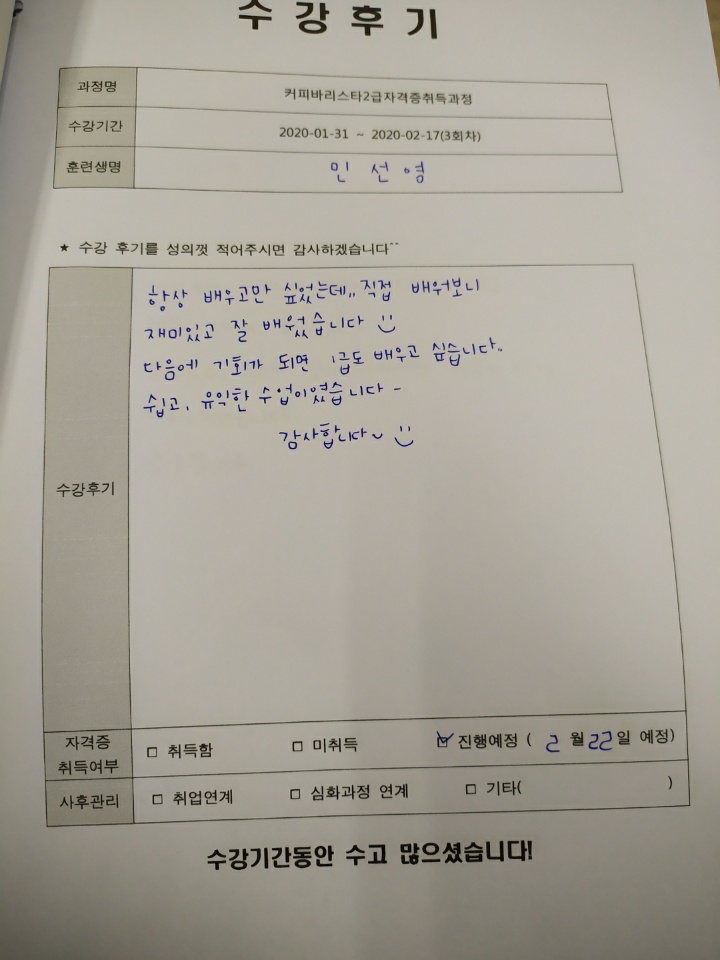 수강후기
과정명 커피바리스타2급자격증취득과정
수강기간 2020-01-31 ~ 2020-02-17(3회차)
훈련생명 민선영
★ 수강 후기를 성의껏 적어주시면 감사하겠습니다^^
항상 배우고만 싶었는데,, 직접 배워보니
재미있고 잘 배웠습니다 :)
다음에 기회가 되면 1급도 배우고 싶습니다..
쉽고, 유익한 수업이었습니다 -
감사합니다~ :)
수강후기
자격증 취득여부 □ 취득함 □ 미취득 ☑ 진행예정 ( 2 월 22일 예정)
사후관리 □ 취업연계 □ 심화과정 연계 □ 기타( )
수강기간동안 수고 많으셨습니다!